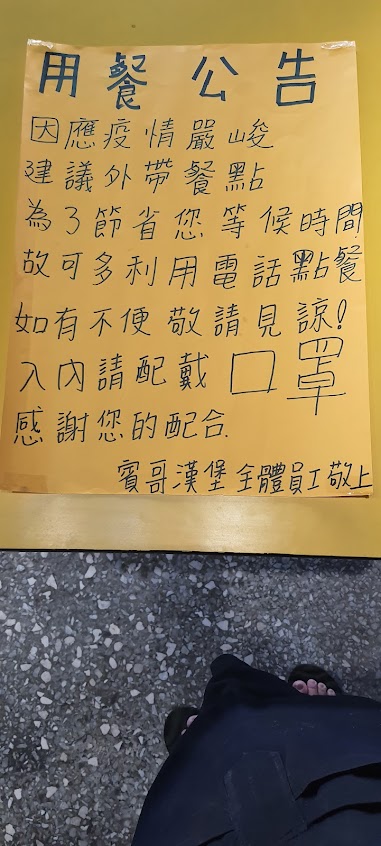 用餐公告
因應疫情嚴峻
建議外帶餐點
為了節省您等候時間
故可多利用電話點餐
如有不便敬請見諒!
入內請配戴口罩
感謝您的配合.
賓哥漢堡全體員工敬上